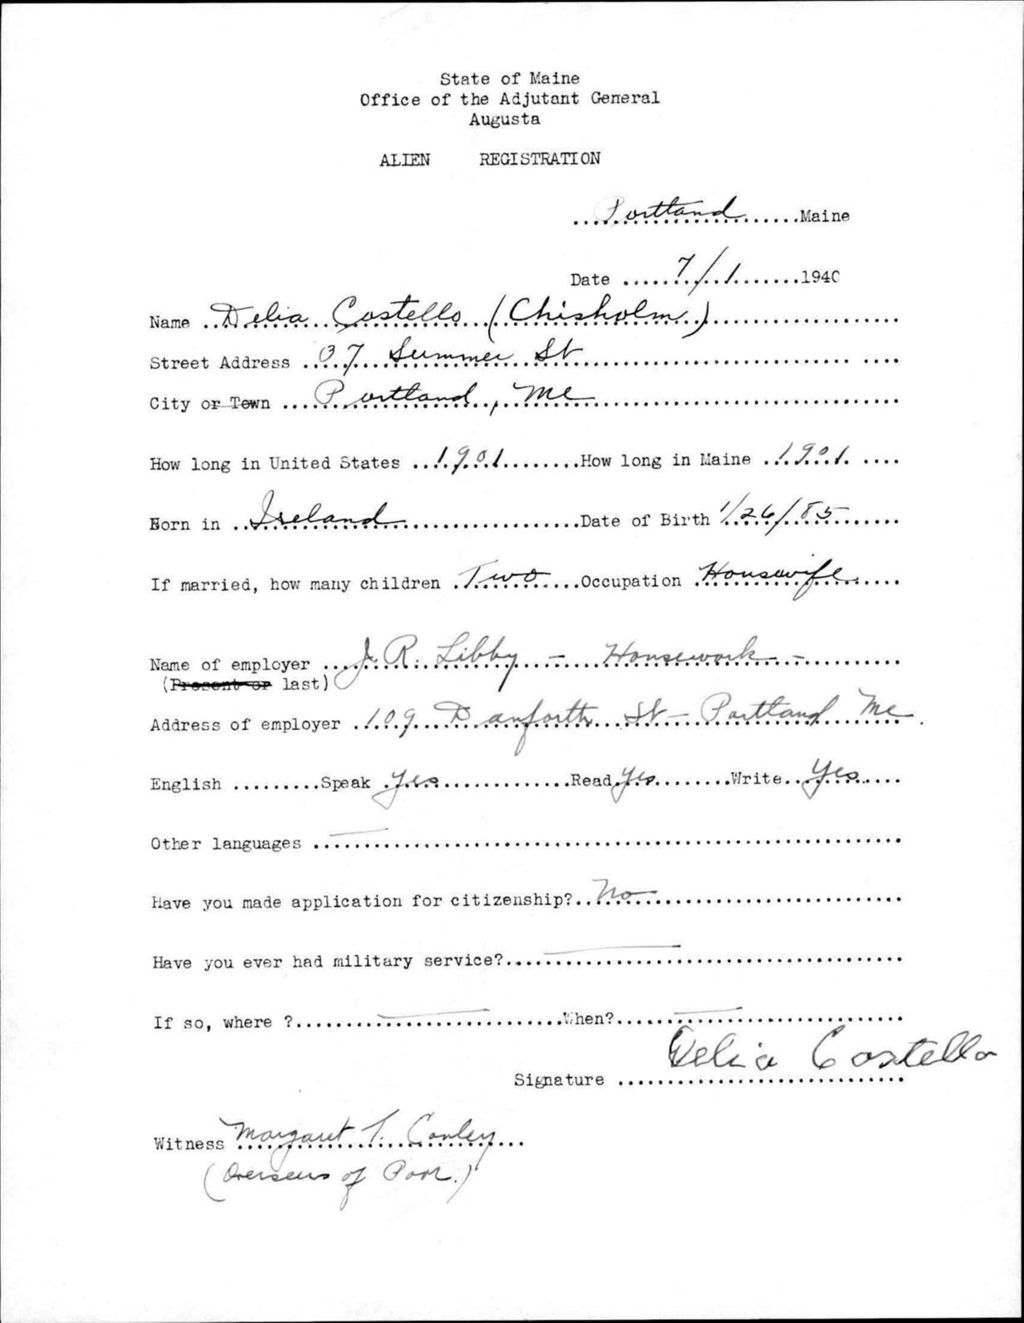 State of Maine
Office of the Adjutant General
Augusta
ALIEN REGISTRATION
Portland Maine
Date 7/1 1940
Name Delia Costello (Chisholm)
Street Address 37 Summer St
City or Town Portland, Me
How long in United States 1901 How long in Maine 1901
Born in Ireland Date of Birth 1/26/85
If married, how many children Two Occupation Housewife
Name of employer J. R. Libby - Housework -
(Present or last)
Address of employer 109 Danforth St - Portland Me
English Speak Yes Read Yes Write Yes
Other languages —
Have you made application for citizenship? No
Have you ever had military service? —
If so, where ? — When? —
Signature Delia Costello
Witness Margaret T. Conley
(Overseers of Poor.)